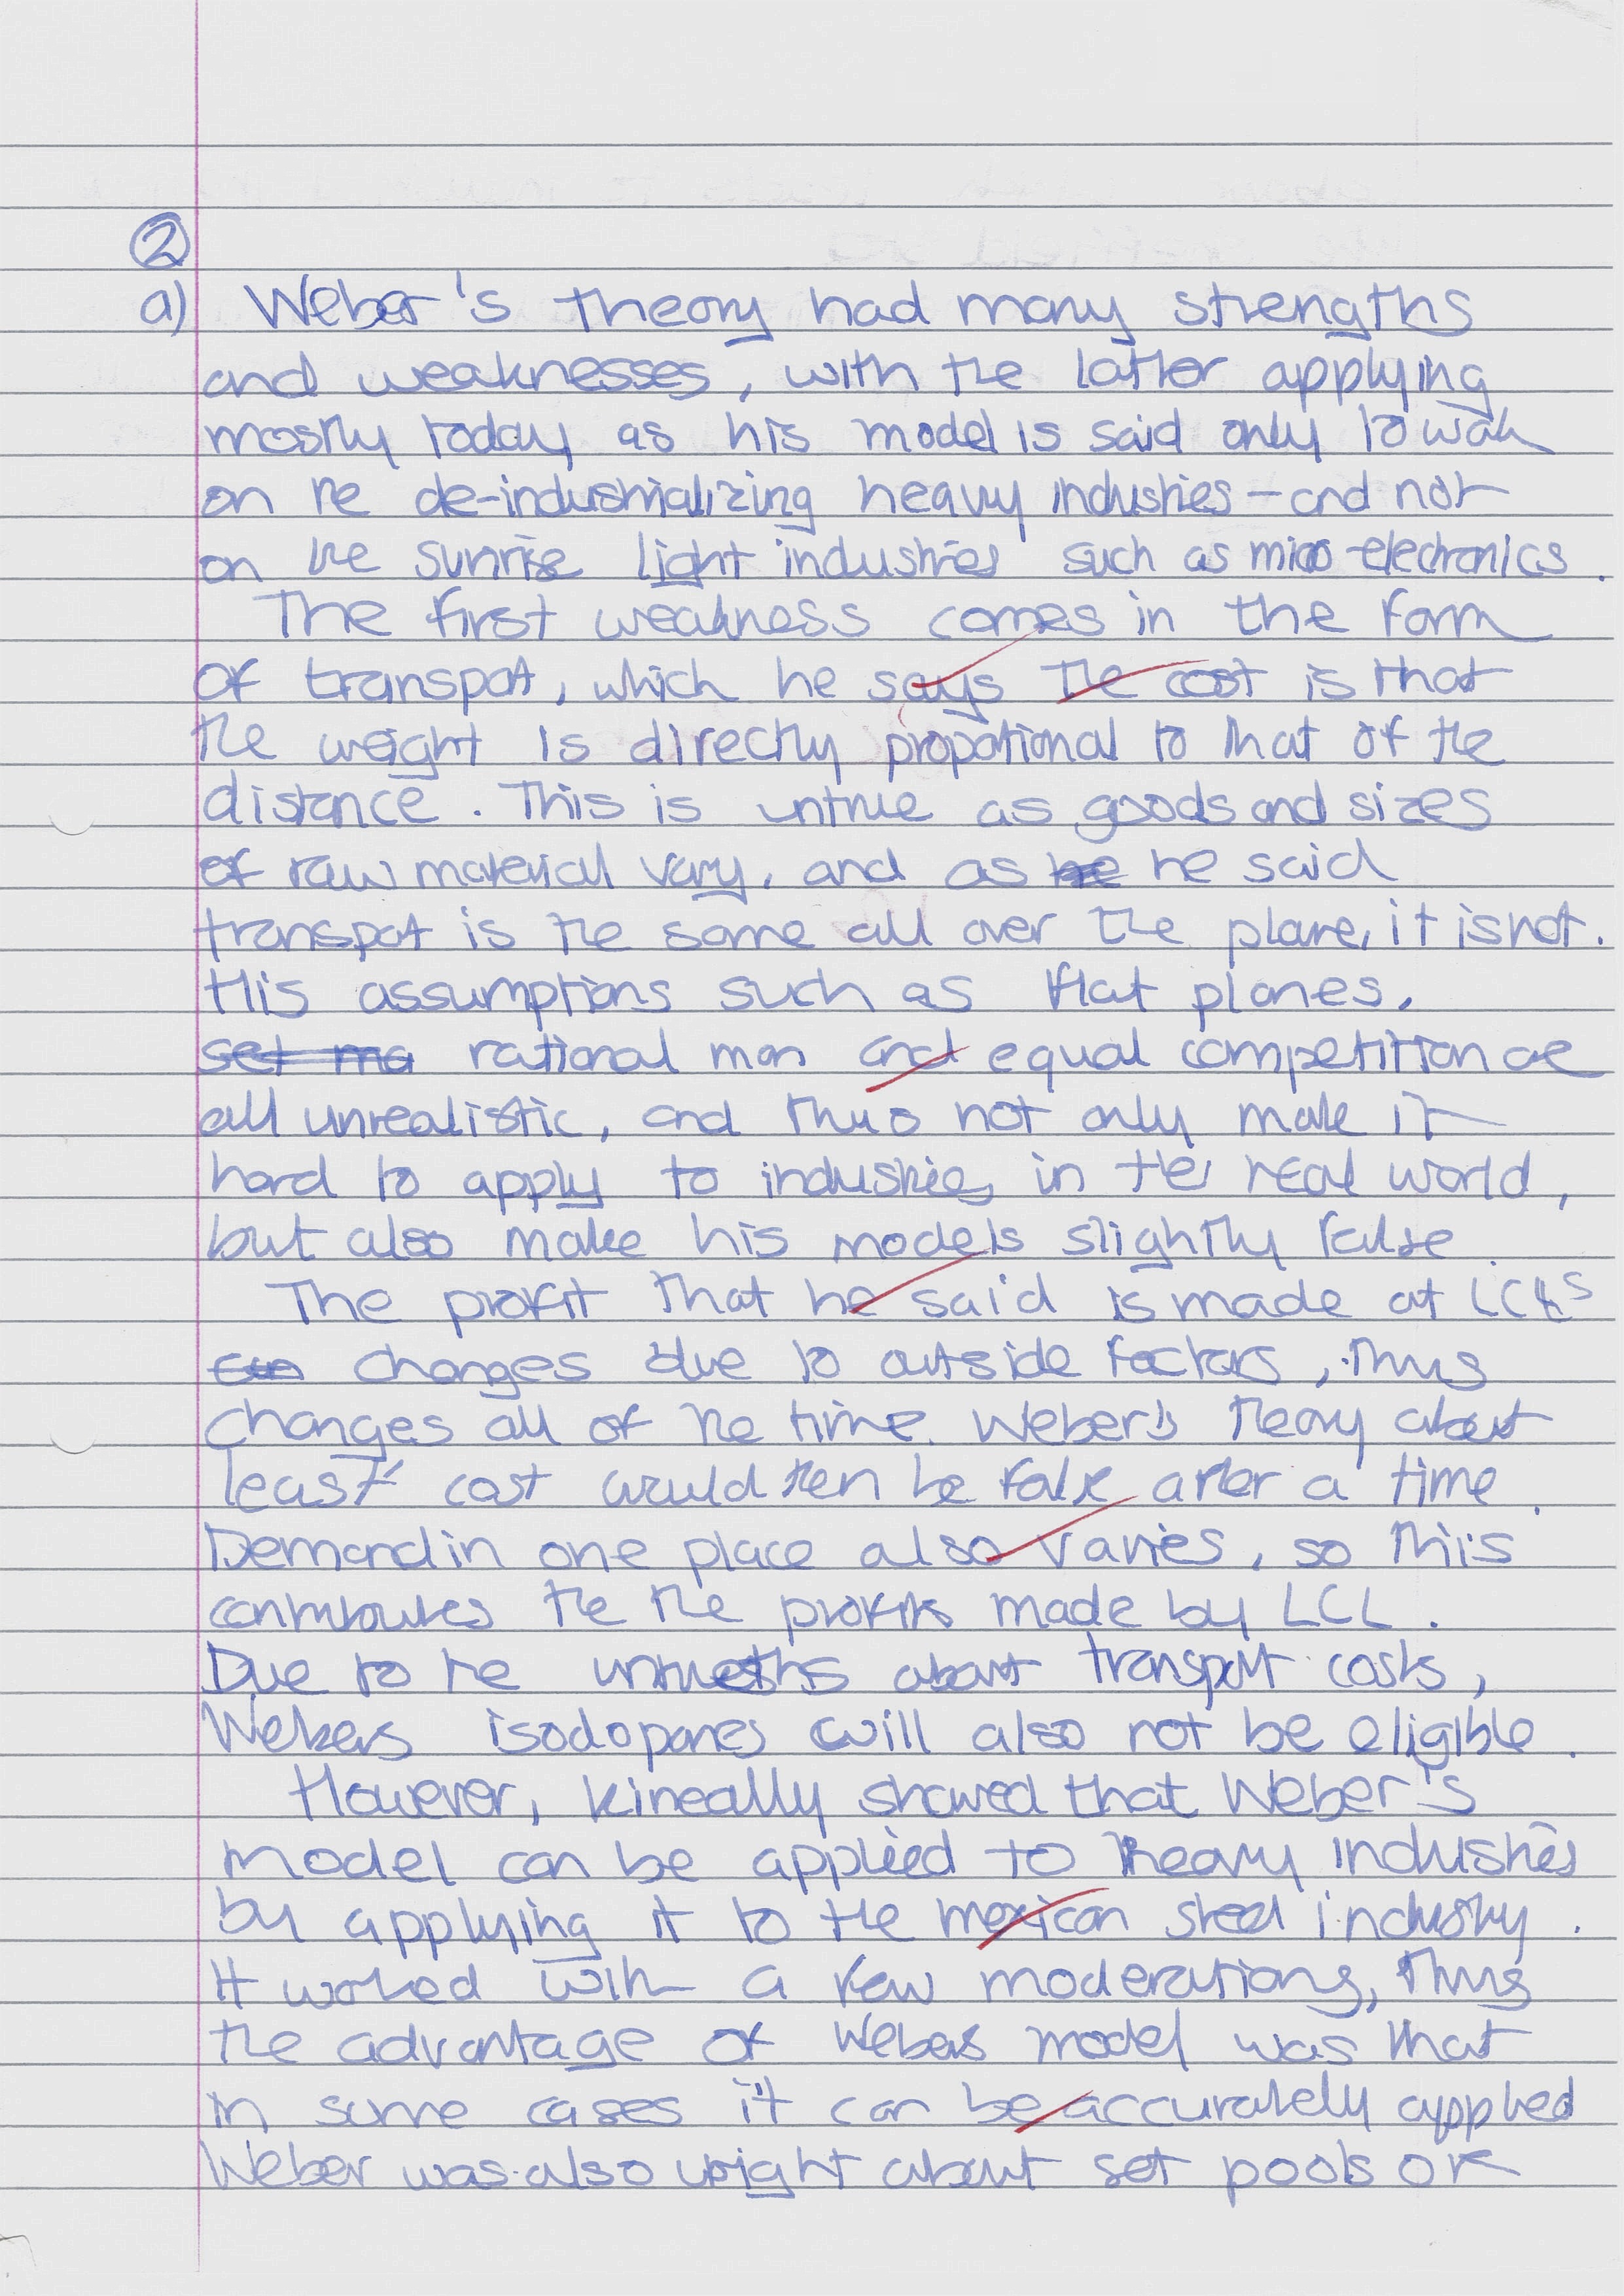 ②
a) Weber's theory had many strengths
and weaknesses, with the latter applying
mostly today, as his model is said only to work
on he de-industrializing heavy industries - and not
on the sunrise light industries such as micro-electronics.
The first weakness comes in the form
of transport, which he says the cost is that
the weight is directly propotional to that of the
distance. This is untrue as goods and sizes
of raw material vary, and as he he said
transport is the same all over the plane, it is not.
His assumptions such as flat planes,
set ma rational man and equal competition are
all unrealistic, and thus not only make it
hard to apply to industries in the real world,
but also make his models slightly false.
The profit that he said is made at LCLs
changes due to outside factors, thus
changes all of the time. Weber's theory about
least cost would then be false after a time.
Demand in one place also varies, so this
contributes the the profits made by LCL.
Due to the untruths about transport costs,
Webers isodopanes will also not be eligible.
However, kineally showed that Weber's
model can be applied to heavy industries
by applying it to the mexican steel industry.
It worked with a few moderations, thus
the advantage of Webers model was that
in some cases it can be accurately applied
Weber was also right about set pools of